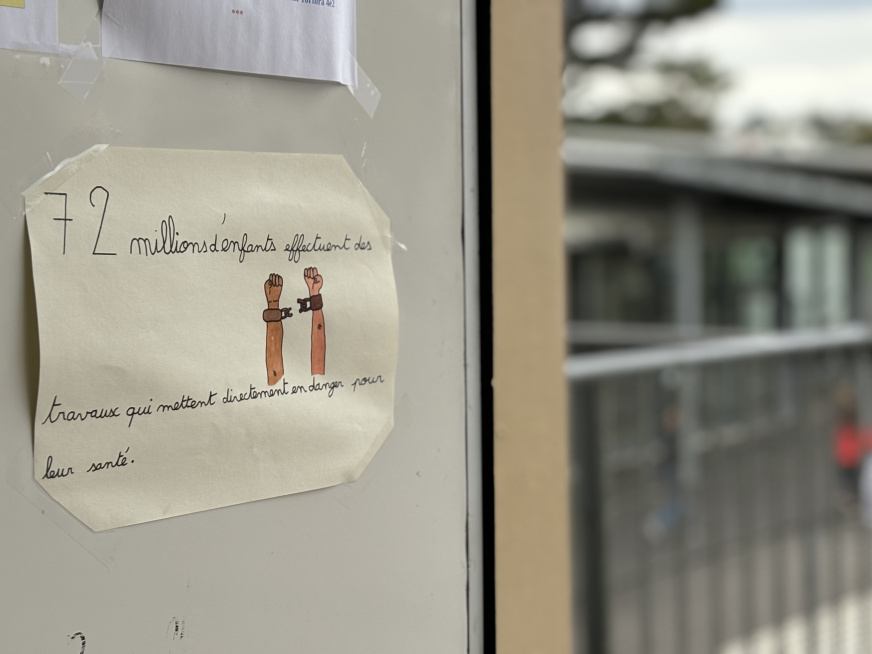 72 millions d'énfants effectuent des
travaux qui mettent directement en danger pour
leur santé.